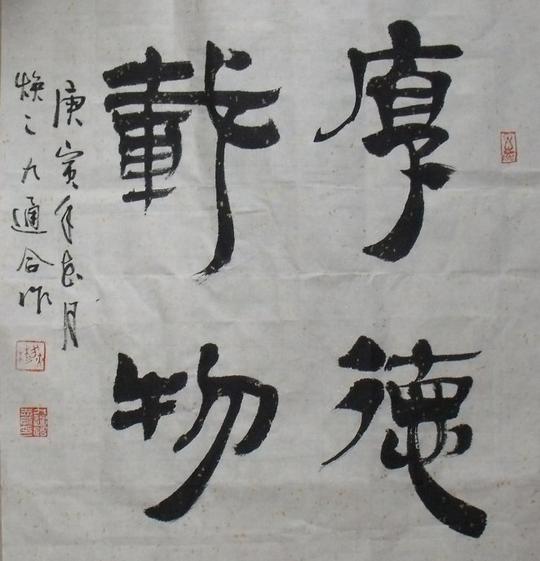 厚德
載物
庚寅年月
焕之九通合作